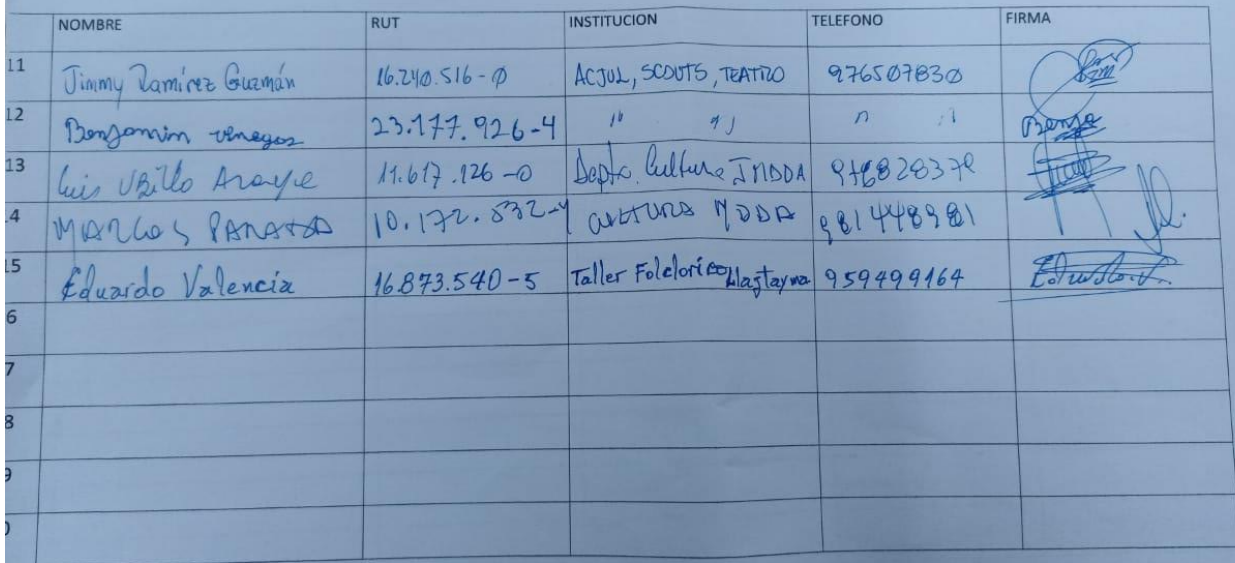 NOMBRE RUT INSTITUCION TELEFONO FIRMA
11 Jimmy Ramírez Guzmán 16.240.516-0 ACJUL, SCOUTS, TEATRO 976507830
12 Benjamin venegas 23.177.926-4 " " " " Benja
13 Luis Ubillo Araya 11.617.126-0 Depto. Cultura IMDDA
14 MARCOS 10.172.532-4 CULTURA MDDA 981448981
15 Eduardo Valencia 16.873.540-5 Taller Folclorico Llaqtayma 959499164 Eduardo.V.
6
7
8
9
0